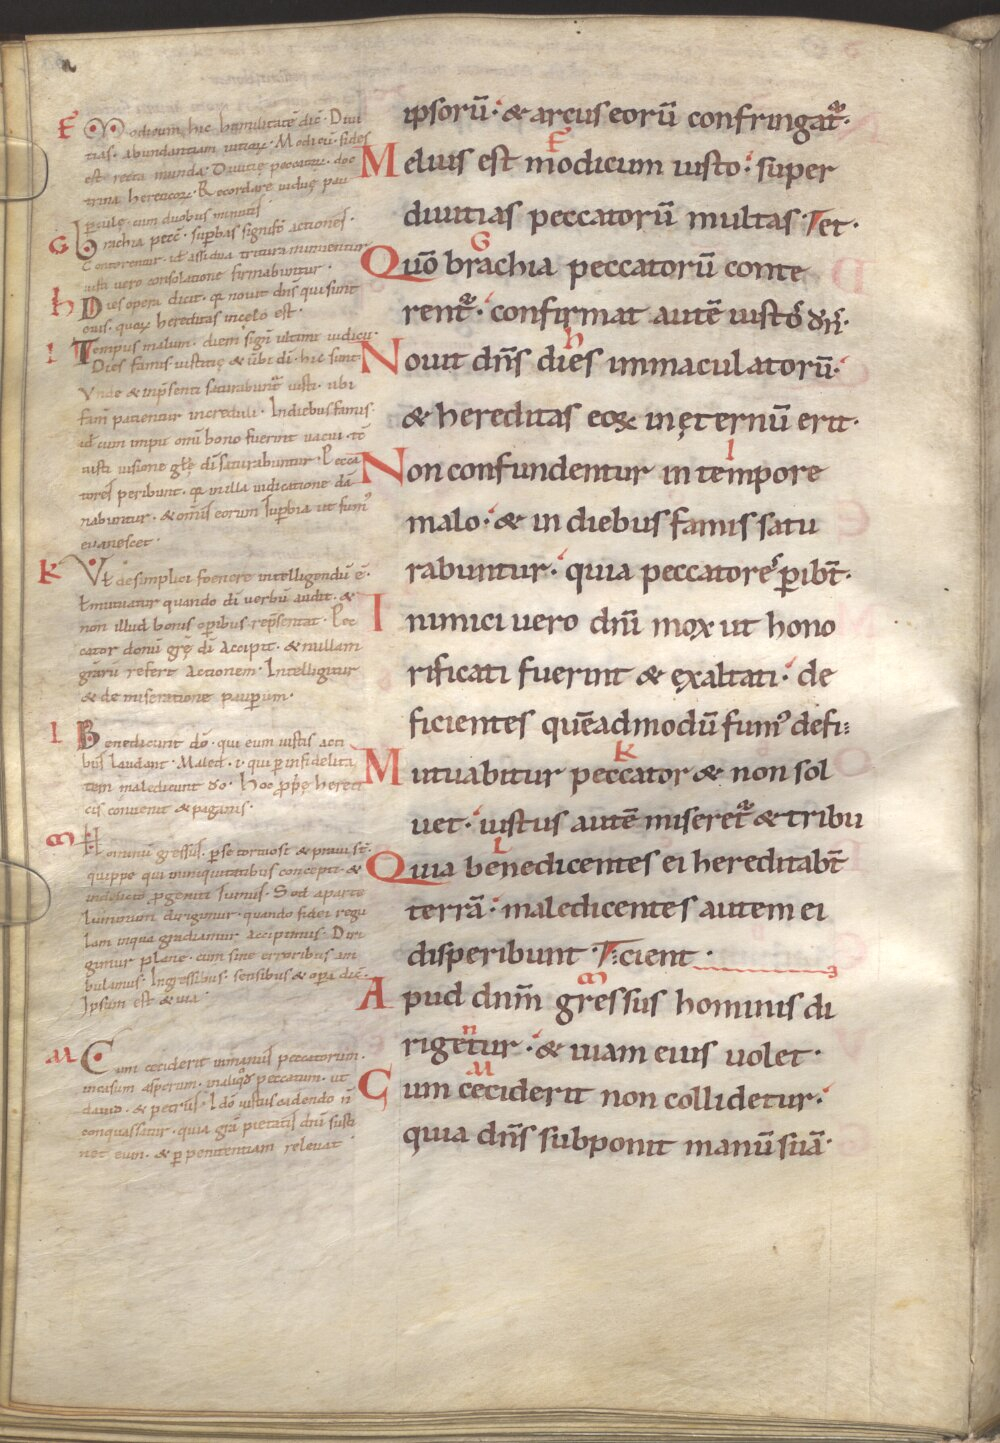 ipsorū · & arcus eorū confringat᷑ ·
Melius est modicum iusto · super
diuitias peccatorū multas
Quō brachia peccatorū conte
rent᷑ · confirmat autē iusto
Nouit dn̄s dies immaculatorū ·
& hereditas eoꝝ in ęternū erit ·
Non confundentur in tempore
malo · & in diebus famis satu
rabuntur · quia peccatores ꝑibt̄ ·
Inimici uero dn̄i mox ut hono
rificati fuerint & exaltati · de
ficientes quēadmodū fum᾿ defi
Mutuabitur peccator & non sol
uet · iustus autē miseret᷑ & tribu
Quia benedicentes ei hereditabt̄
terrā · maledicentes autem ei
disperibunt · cient ·
Apud dn̄m gressus hominis di
rigetur · & uiam eius uolet ·
Cum ceciderit non collidetur ·
quia dn̄s subponit manū suā ·
F Modicum hic humilitatē dic̄ · Diui
tias · abundantiam uitioꝝ · Modicū fides
est recta munda · Diuitię peccatoꝝ · doc
trina hereticoꝝ · Recordare uiduę pau
perculę cum duobus minutis
G Brachia pecc̄ · suꝑbas signific̄ actiones ·
Conterentur · id ē assidua tritura minuentur
iusti uero consolatione firmabuntur ·
h Dies opera dicit · q nouit dn̄s qui sunt
eius · quoꝝ hereditas in celo est ·
I Tempus malum · diem sign̄ ultimi iudicii ·
Dies famis iustitię & uerbi dī · hic sunt ·
Vnde & in p̄senti saturabunt᷑ iusti · ubi
famē patientur increduli · In diebus famis ·
id ē cum impii omī bono fuerint uacui · tc̄
iusti uisione glę dī saturabuntur · Pecca
tores peribunt · q in illa iudicatione dā
nabuntur · & omīs eorum suꝑbia ut fum᾿
euanescet ·
K Vt̄ de simplici foenere intelligendū ē ·
t mutuatur quando dī uerbū audit · &
non illud bonis oꝑibus rep̄sentat · Pec
cator donū grę dī accipit · & nullam
gr̄arū refert actionem · Intelligitur
& de miseratione pauperum ·
l Benedicunt dō · qui eum iustis acti
bus laudant · Maled · i · qui ꝑ infidelita
tem maledicunt dō · Hoc ꝓprię hereti
cis conuenit & paganis ·
M Hominū gressus · per se tortuosi & praui st̄ ·
quippe qui in iniquitatibus concepti · &
in delicto ꝓgeniti sumus · Sed a parte
luminum dirigimur · quando fidei regu
lam in qua gradiamur accipimus · Diri
gimur plane · cum sine erroribus am
bulamus · In gressibus · sensibus & opa dic̄ ·
Ipsum est & uia ·
Cum ceciderit in manus peccatorum ·
in casum asperum · in aliqđ peccatum · ut
dauid · & petrus · Idō iustus cadendo n̄
conquassatur · quia gr̄a pietatis dn̄i susti
net eum · & ꝑ penitentiam releuat